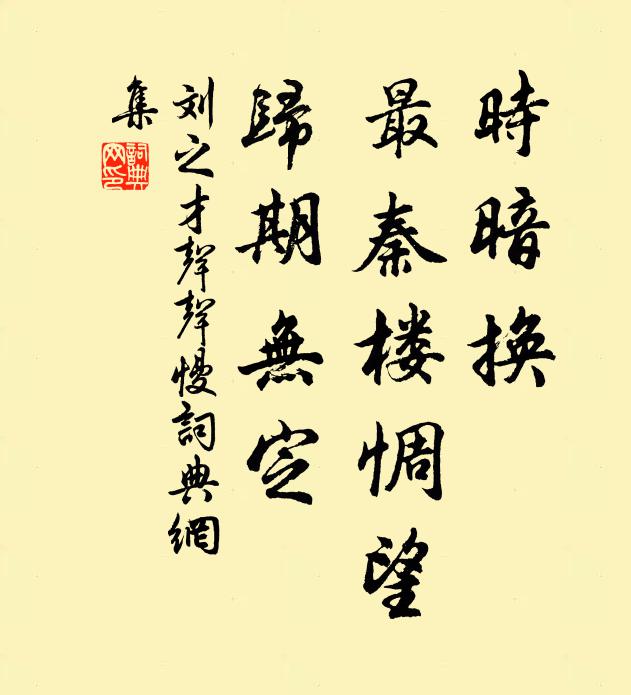 時暗換
最秦楼惆望
歸期無定
刘之才聲聲慢詞典網
集
詞典
网印